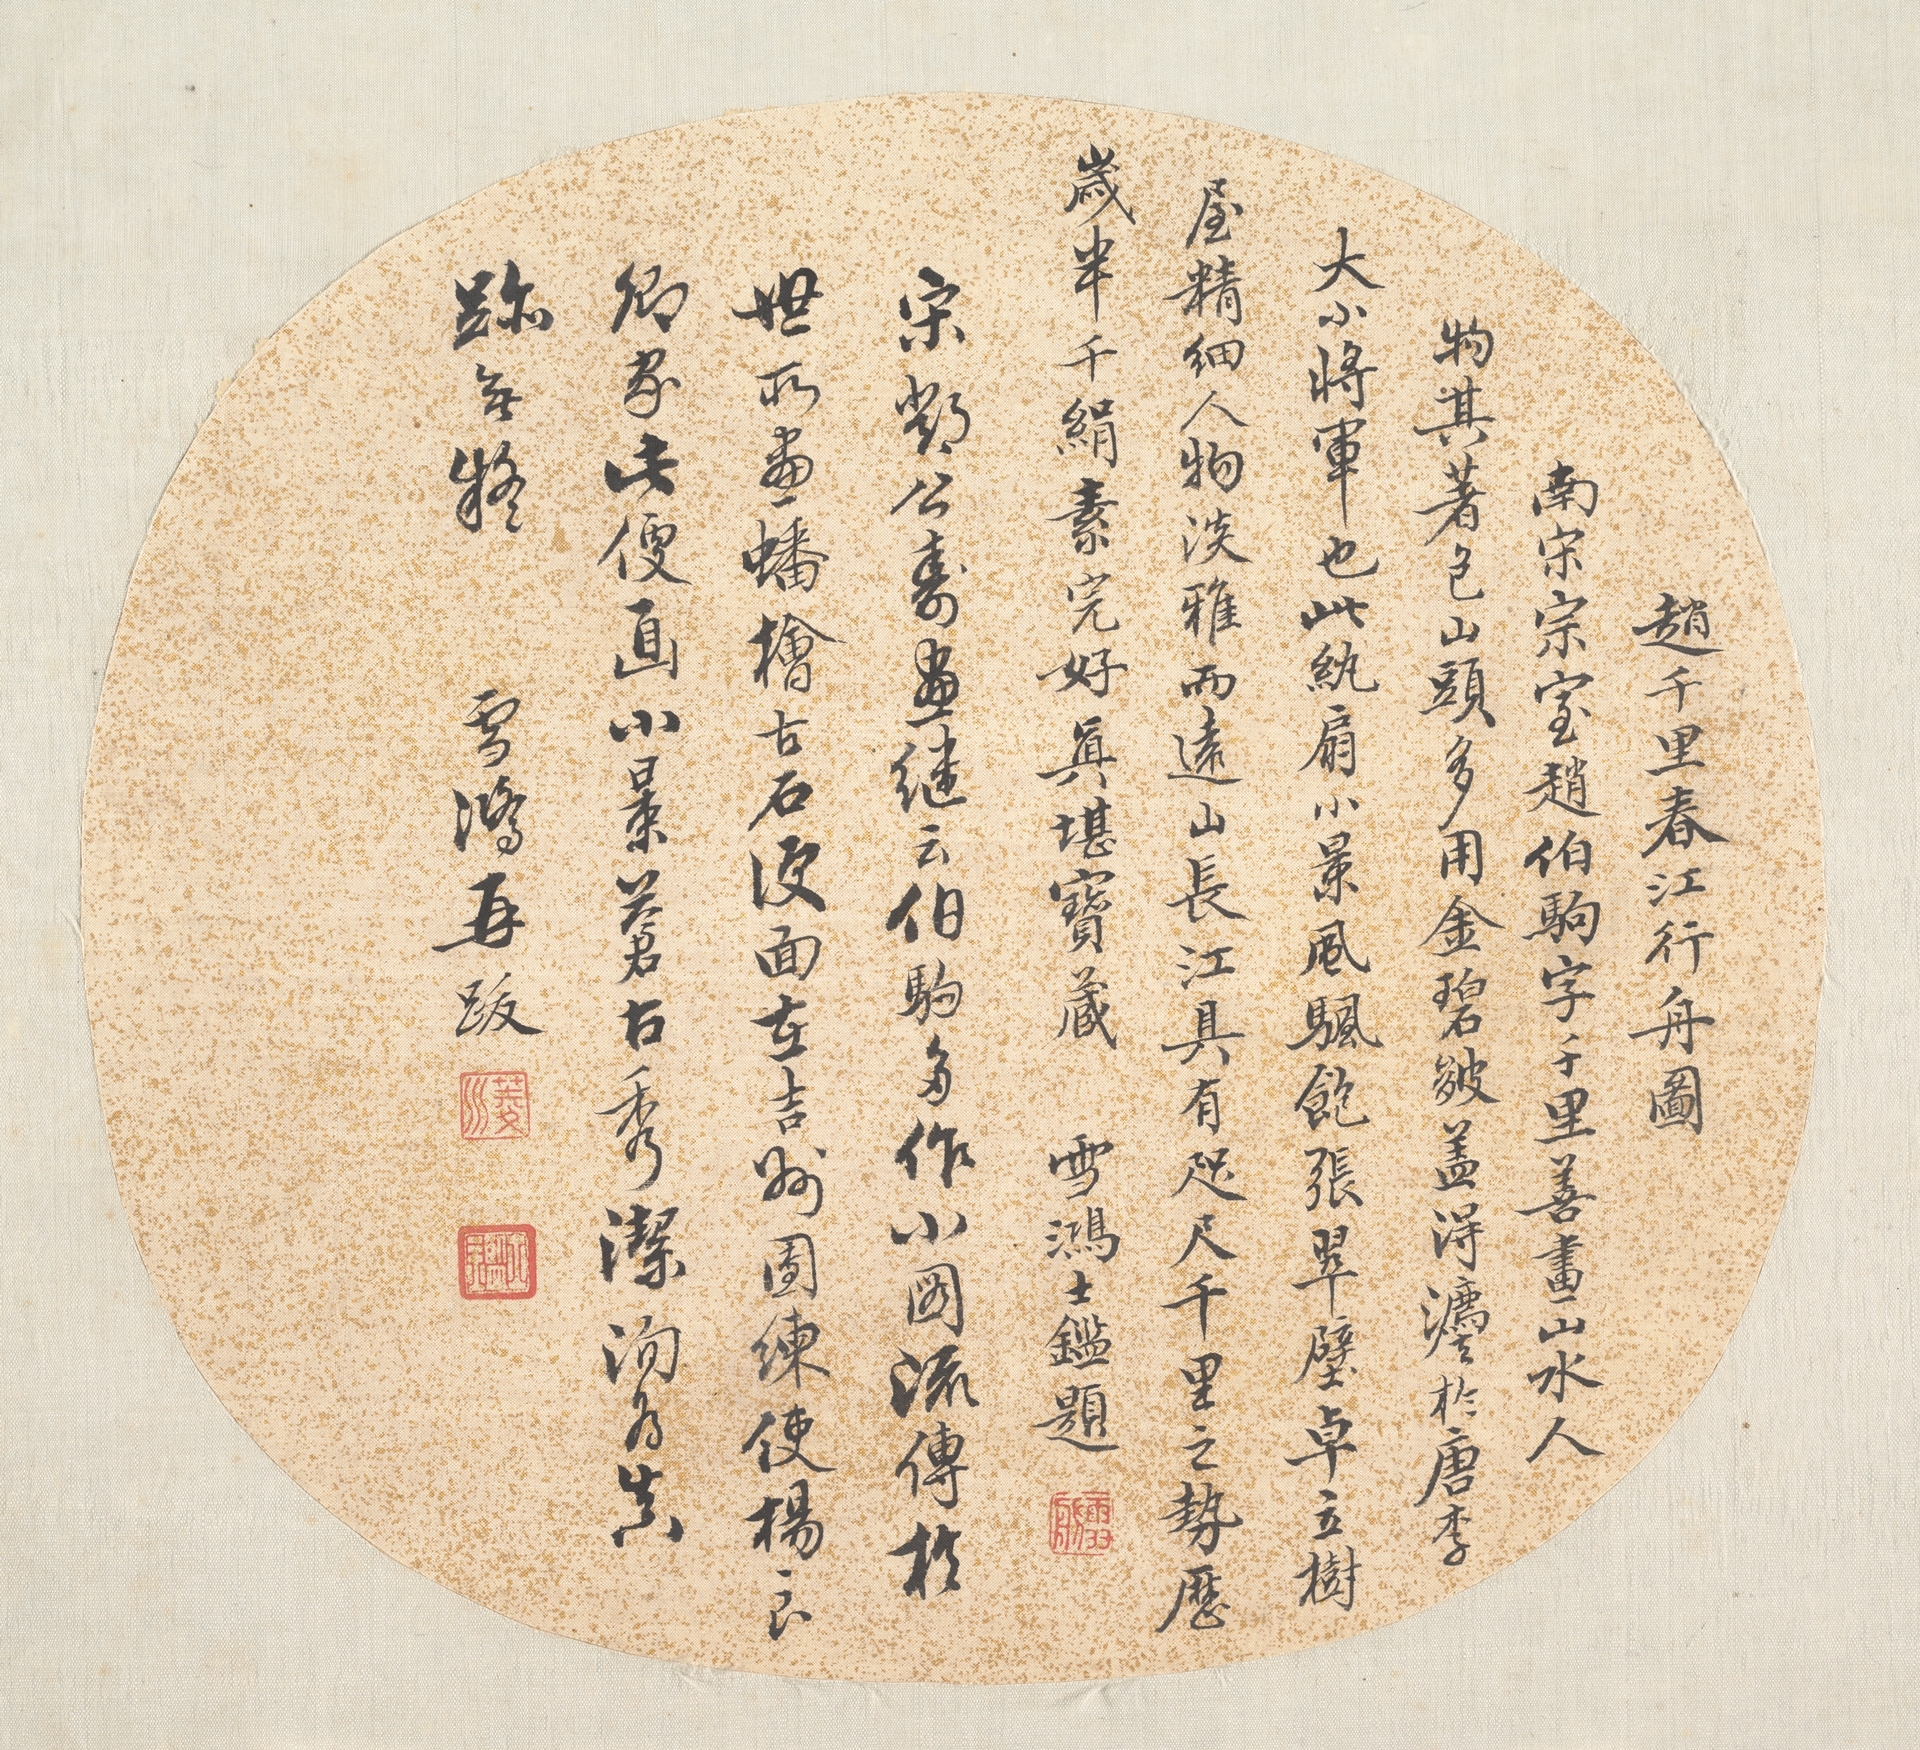 趙千里春江行舟圖
南宋宗室趙伯駒字千里善畫山水人
物其著色山頭多用金碧皴盖得灋於唐李
大小將軍也此紈扇小景風颿飽張翠壁卓立樹
屋精細人物淡雅而遠山長江具有咫尺千里之勢歷
歲半千絹素完好真堪寶藏 雪鴻士鑑題
宋鄧公壽畫繼云伯駒多作小圖流傳於
世所畫蟠檜古石便面在吉州團練使楊
卿家此便面小景蒼古秀潔洵為真
跡無疑 雪鴻再跋